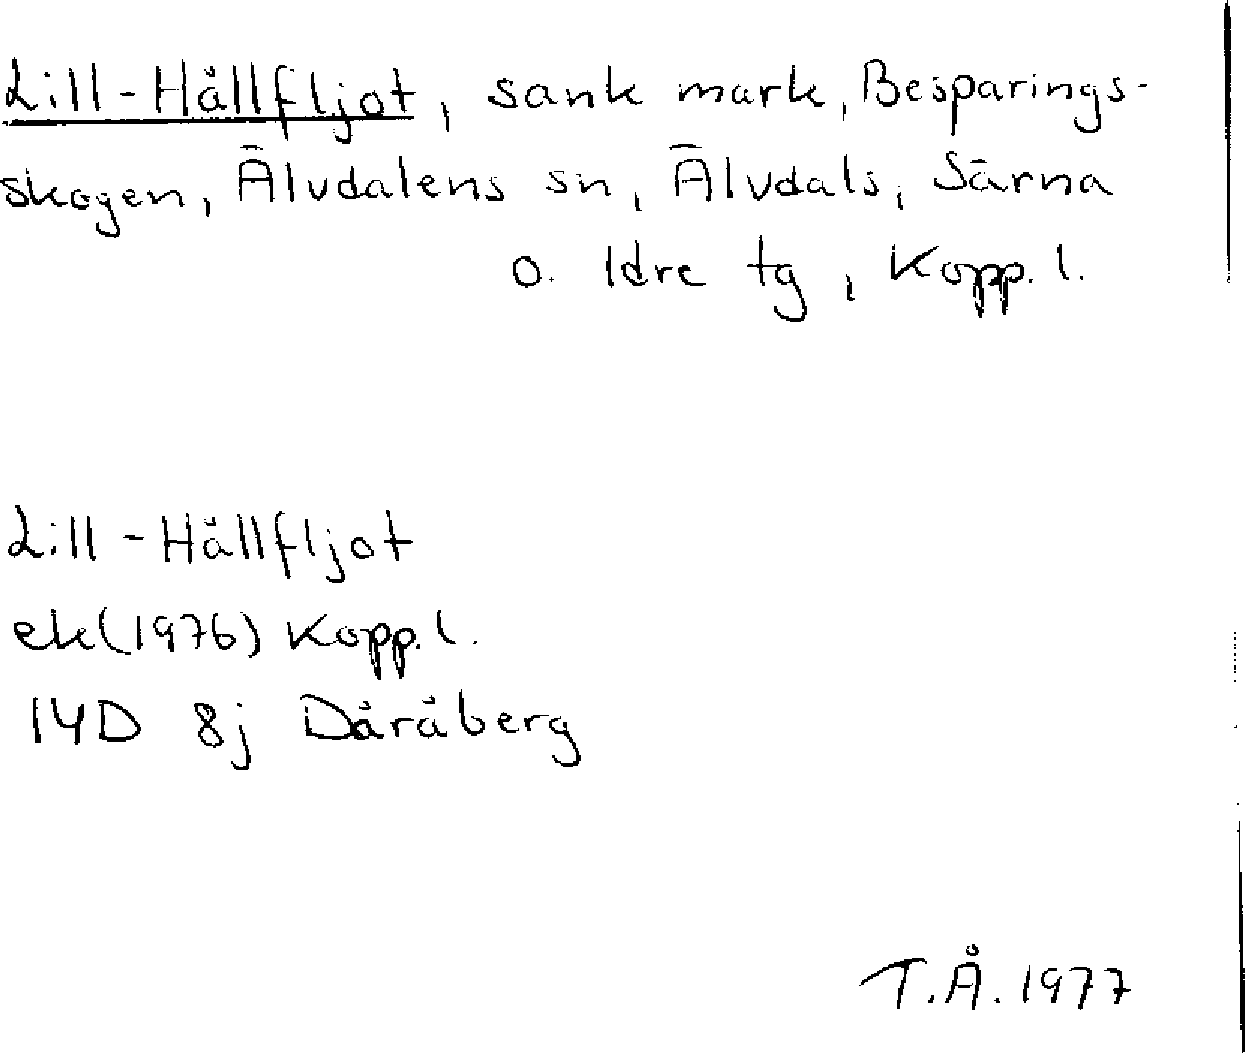 Lill-Hållfljot, sank mark, Besparings-
skogen, Älvdalens sn, Älvdals, Särna
o. Idre tg, Kopp. l.
Lill-Hållfljot
ek(1976) Kopp. l.
14D 8j Däråberg
T.Å. 1977